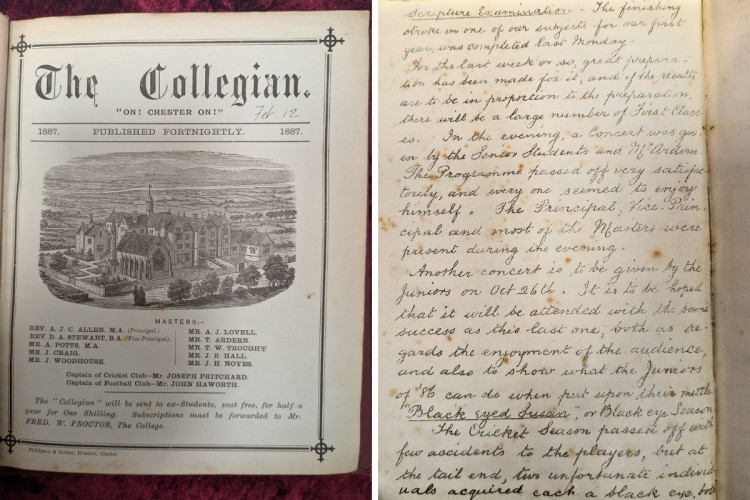 The Collegian.
"ON! CHESTER ON!"
Feb 12
1887. PUBLISHED FORTNIGHTLY. 1887.
MASTERS:—
REV. A. J. C. ALLEN, M.A. (Principal).
REV. D. A. STEWART, B.A. (Vice-Principal).
MR. A. POTTS, M.A.
MR. J. CRAIG.
MR. J. WOODHOUSE.
MR. A. J. LOVELL.
MR. T. ARDERN.
MR. T. W. TROUGHT
MR. J. B. HALL.
MR. J. H. NOYES.
Captain of Cricket Club—Mr. JOSEPH PRITCHARD.
Captain of Football Club—Mr. JOHN HAWORTH.
The "Collegian" will be sent to ex-Students, post free, for half a
year for One Shilling. Subscriptions must be forwarded to Mr.
FRED. W. PROCTOR, The College.
Phillipson & Golder, Printers, Chester.
Scripture Examination - The finishing
stroke in one of our subjects for our first
year, was completed last Monday.
For the last week or so, great prepara-
tion has been made for it, and if the results
are to be in proportion to the preparation,
there will be a large number of First Class-
es. In the evening, a Concert was giv-
en by the Senior Students and Mr Ardern
The Programme passed off very satisfac-
torily, and every one seemed to enjoy
himself. The Principal, Vice-Prin-
cipal and most of the Masters were
present during the evening.
Another concert is to be given by the
Juniors on Oct 26th. It is to be hoped
that it will be attended with the same
success as this last one, both as re-
gards the enjoyment of the audience,
and also to show what the Juniors
of '86 can do when put upon their mettle
"Black Eyed Susan" or Black eye Season
The Cricket Season passed off with
few accidents to the players, but at
the tail end, two unfortunate individ-
uals acquired each a black eye, both